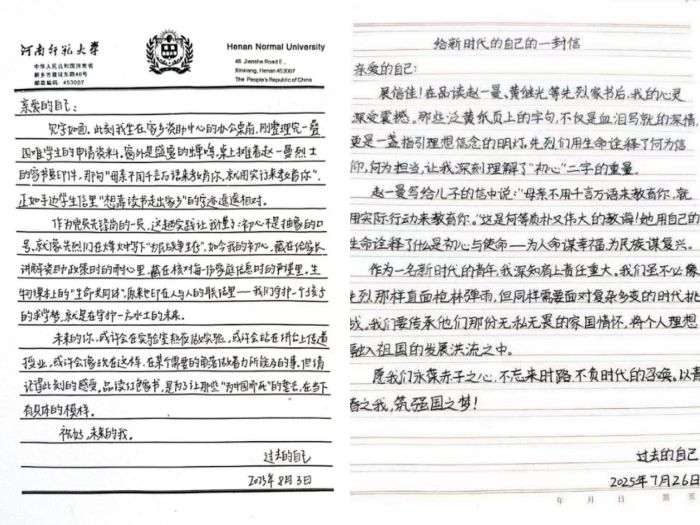 河南师范大学
中华人民共和国河南省
新乡市建设东路46号
邮政编码 453007
Henan Normal University
46 Jianshe Road E.,
Xinxiang, Henan 453007
The People's Republic of China
亲爱的自己:
见字如面。此刻我坐在家乡资助中心的办公桌前,刚整理完一叠
困难学生的申请资料。窗外是盛夏的蝉鸣,桌上摊着赵一曼烈士
的家书复印件,那句“母亲不用千言万语来教育你,就用实行来教育你”,
正如手边学生信里“想靠读书走出家乡”的字迹遥遥相对。
作为党员先锋岗的一员,这趟实践让我懂了:初心不是抽象的口
号,就像先烈们在烽火中写下“为民族牺牲”,如今我的初心,藏在给家长
讲解资助政策时的耐心里,藏在核对每一份家庭信息时的严谨里。生
物课本上的“生命共同体”,原来也印在人与人的联结里——我们守护一个孩子
的求学梦,就是在守护一方水土的未来。
未来的你,或许会在实验室熬夜做实验,或许会站在讲台上传道
授业,或许会像现在这样,在某个需要的角落做着力所能及的事。但请
记得此刻的感受,品读红色家书,是为了让那些“为中国而死”的誓言,在当下
有具体的模样。
祝好,未来的我。
过去的自己
2025年8月3日
给新时代的自己的一封信
亲爱的自己:
展信佳!在品读赵一曼、黄继光等先烈家书后,我的心灵
深受震撼。那些泛黄纸页上的字句,不仅是血泪写就的深情,
更是一盏指引理想信念的明灯。先烈们用生命诠释了何为信
仰,何为担当,让我深刻理解了“初心”二字的重量。
赵一曼写给儿子的信中说:“母亲不用千言万语来教育你,就
用实际行动来教育你。”这是何等质朴又伟大的教诲!她用自己的
生命诠释了什么是初心与使命——为人命谋幸福,为民族谋复兴。
作为一名新时代的青年,我深知肩上责任重大。我们虽不必像
先烈那样直面枪林弹雨,但同样需要面对复杂多变的时代挑
战。我们要传承他们那份无私无畏的家国情怀,将个人理想
融入祖国的发展洪流之中。
愿我们永葆赤子之心,不忘来时路,不负时代的召唤。以青
春之我,筑强国之梦!
过去的自己
2025年7月26日
年 月 日 第 页